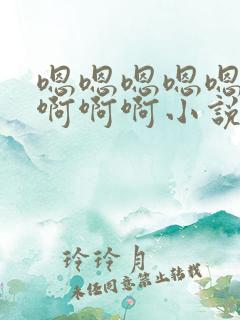 嗯嗯嗯嗯嗯
啊啊啊小說
玲玲月
未经同意禁止转载